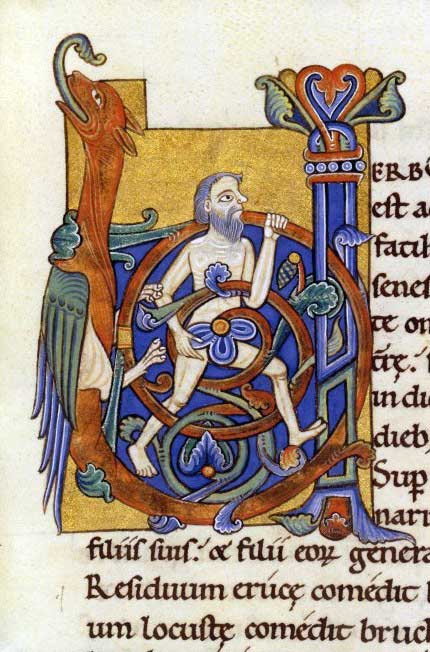 VERBŪ
est ad
senes
te om
trę.
in die
dieb;
Sup
narr
filiis suis: & filii eoꝝ genera
Residuum erucę comedit
um locustę comedit bruch